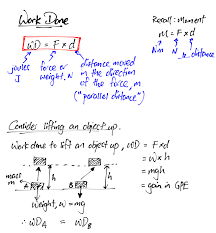 Work Done
WD = F × d
joules
J
force or
weight, N
distance moved
in the direction
of the force, m
("parallel distance")
Recall: Moment
M = F × d
Nm N ⊥ distance
Consider lifting an object up.
Work done to lift an object up, WD = F × d
= W × h
= mgh
= gain in GPE
mass
m
h
h
A
B
weight, w = mg
∴ WD_A = WD_B